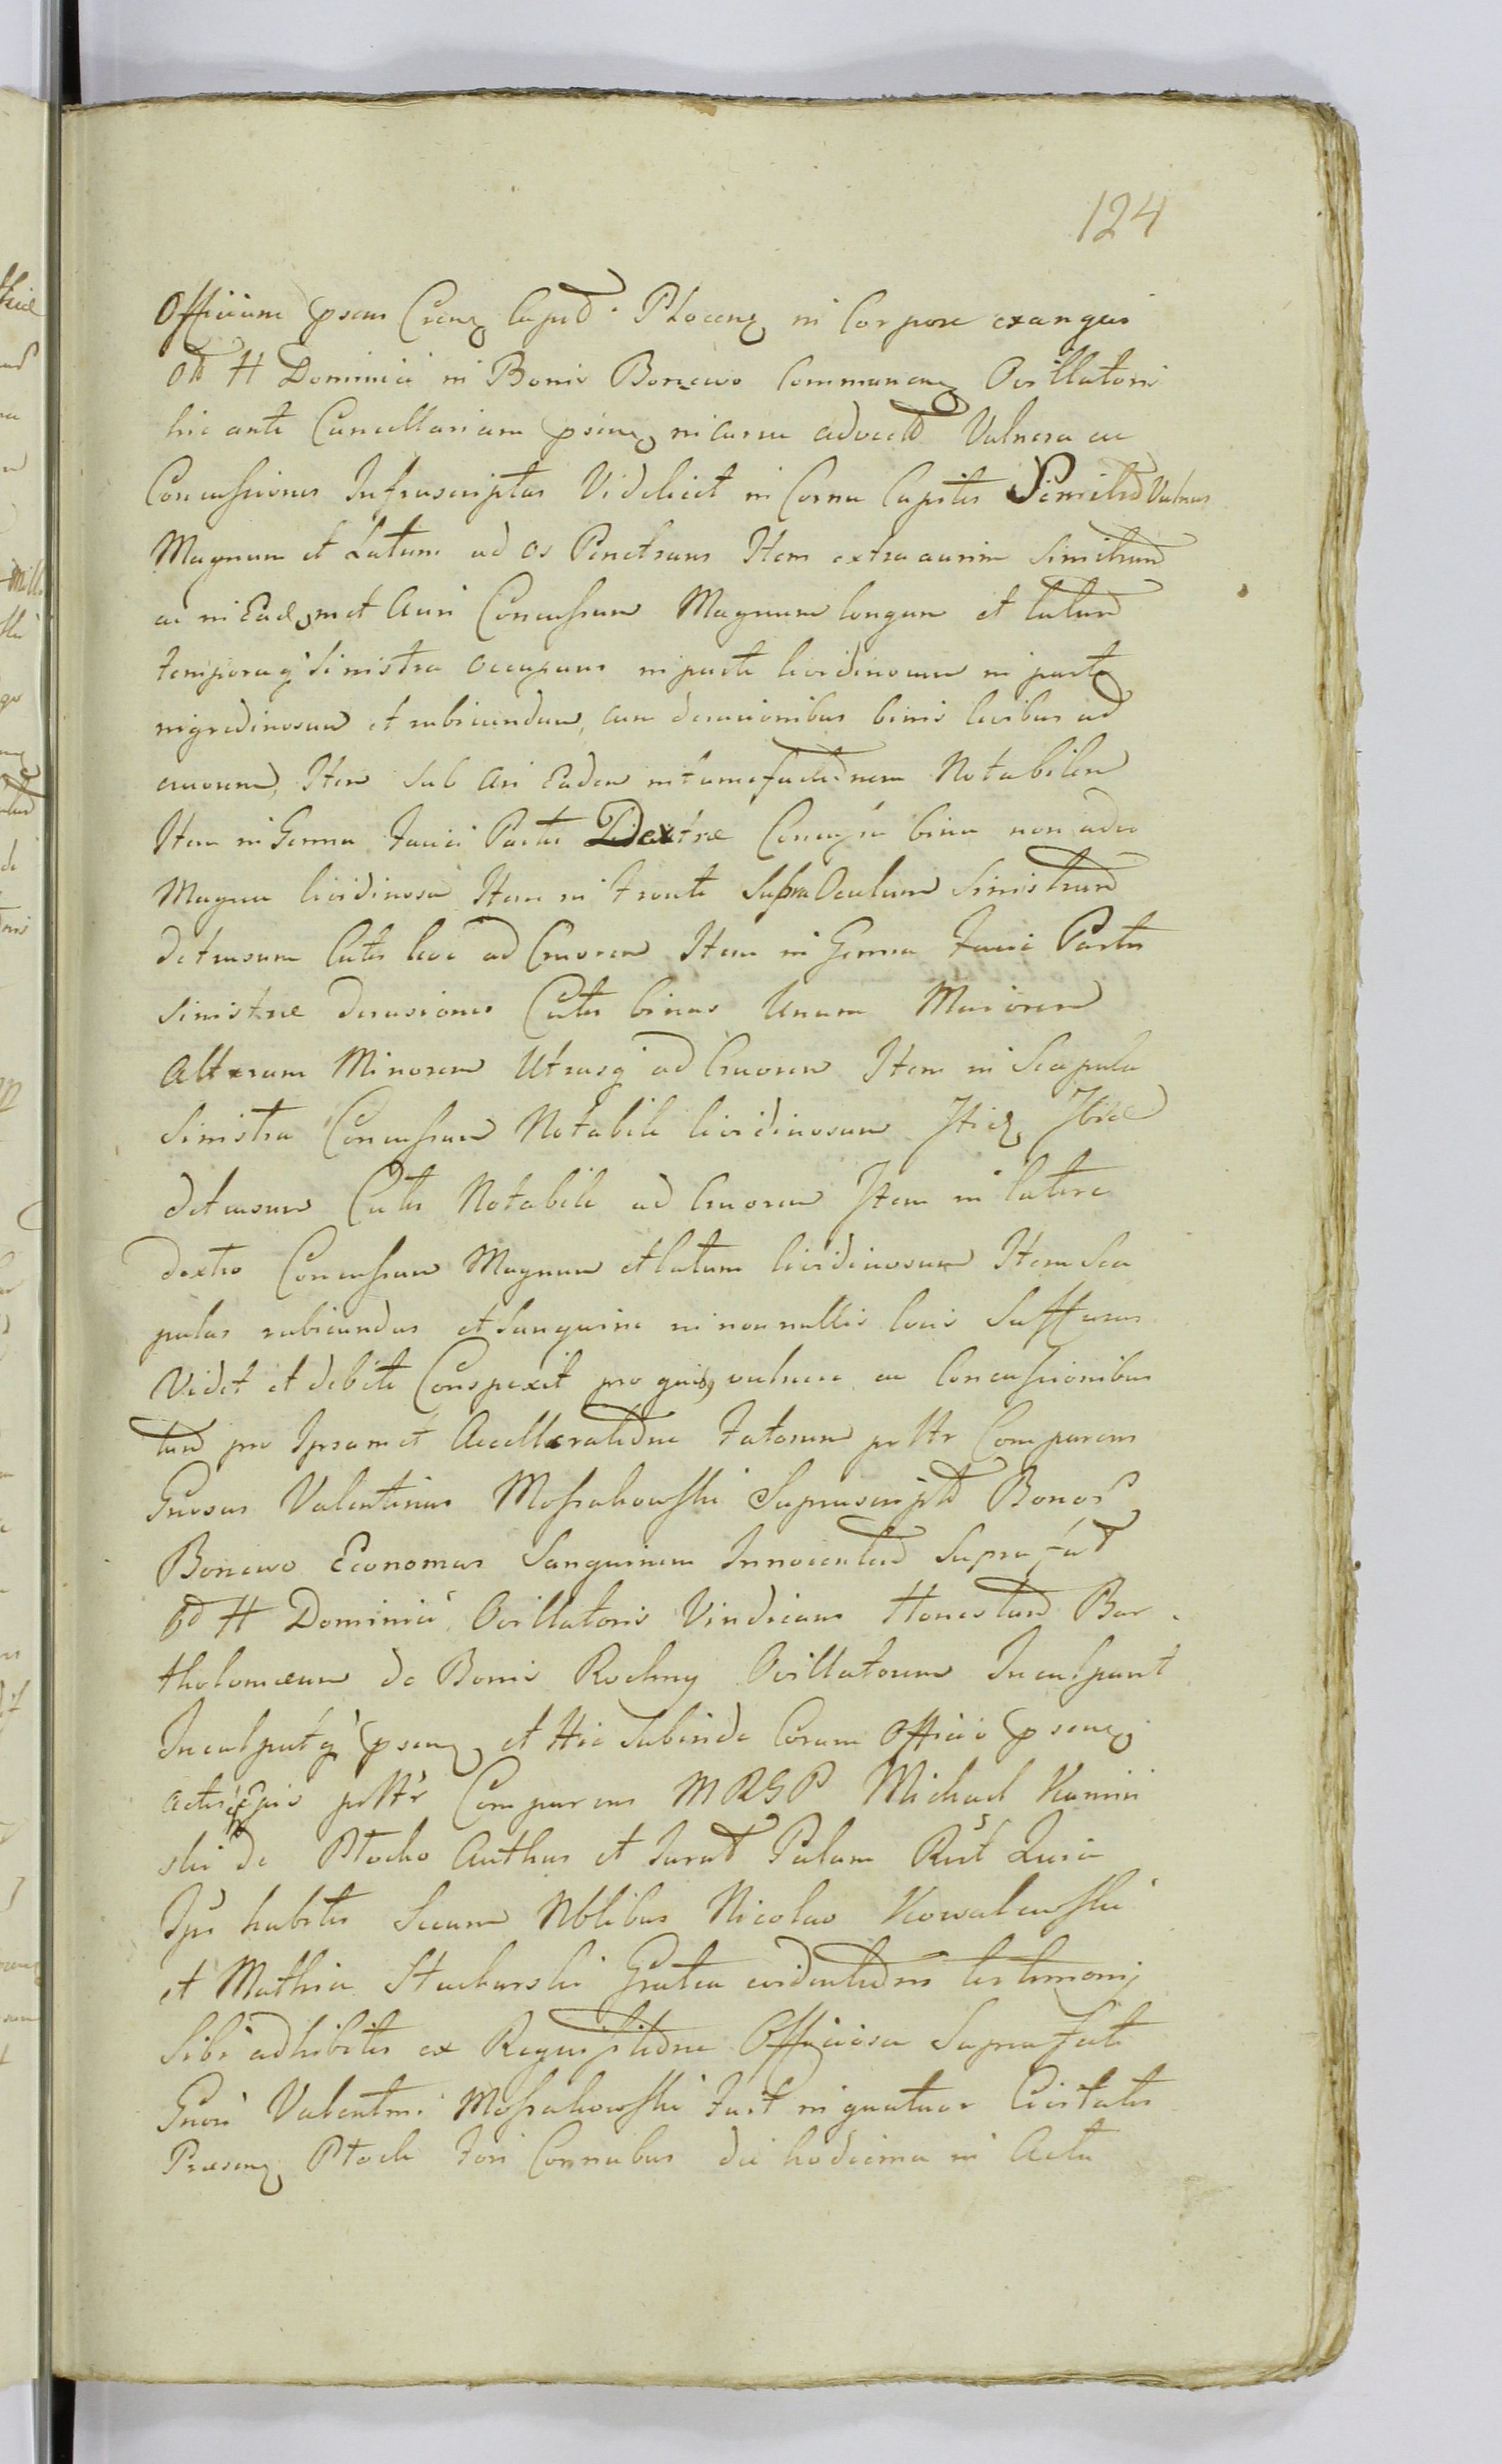 124
Officium psens Crens Capid. Plocens in Corpore exangui
Od H Dominici in Bonis Bonewo Commanens Ovillatoris
hic ante Cancellariam psens in curru advectd Vulnera ac
Concussiones Infrascriptas Videlicet in Cornu Capitis Vulnus
Magnum et Latum ad os Penetrans Item extra aurim Sinistram
ac in Eademet Auri Concussum Magnum longum et latum
temporaq Sinistra occupans in parte lividinosum in parte
nigredinosum et rubicundum, cum derasionibus binis levibus ad
cruorem, Item Sub Ari Eadem intumefactionem Notabilem
Item in Genua Faciei Partis Dextrae bina non adeo
Magna lividinosa Item in fronte Supra Oculum Sinistrum
detrusum Cutis leve ad Cruorem Item in Genua Faciei Partis
Sinistrae derasiones Cutis binas Unam Maiorem
Alteram Minorem Utrasq ad Cruorem Item in Scapula
Sinistra Concussum Notabile lividinosum Ibid
detrusum Cutis Notabile ad Cruorem Item in latere
dextro Concussum Magnum et latum lividinosum Item Sca
pulas rubicundas et Sanguine in non nullis locis Suffusas
Vidit et debite Conspexit pro quibs vulnere ac Concussionibus
tum pro Ipsamet Accelleratione Fatorum prltr Comparens
Gnosus Valentinus Mossakowski Suprascriptd Bonor
Bonewo Economus Sanguinem Innocentem Suprafat
Od H Dominici Ovillatoris Vindicans Honestum Bar
tholomaeum de Bonis Rochny Ovillatorem Inculpavit
Inculpatq psens et Hic Subinde Coram Officio psens
Actisq prltr Comparens MRGP Michael Kamin
ski de Plocko Authus et Jurat Palam Rct Quia
Ips habitis Secum Nblibus Nicolao Kowalewski
et Mathia Stacharski Gratia evidentioris testimonij
Sibi adhibitis ex Requisitione Officiosa Suprafati
Gnosi Valentini Mossakowski Fuit in quatuor Civitatis
Praesens Plock Fori Cornubus die hodierna in Actu